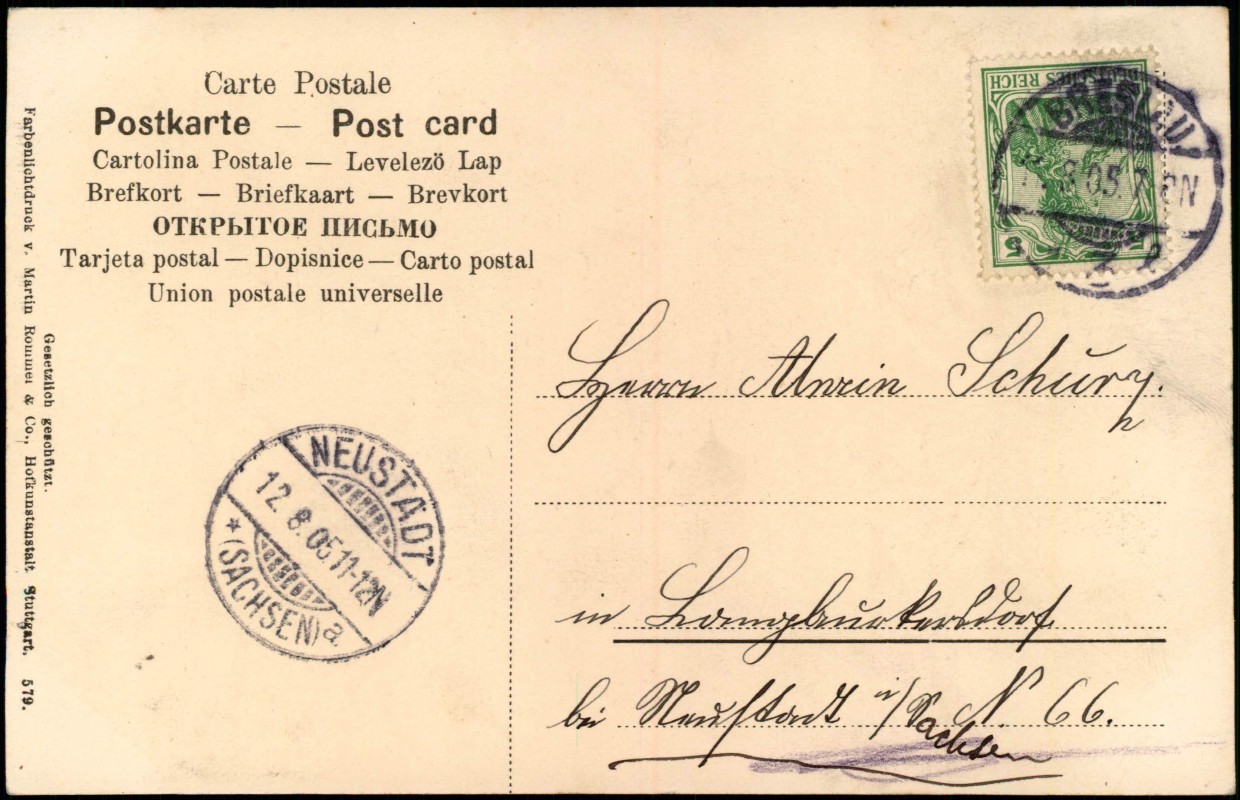 Carte Postale
Postkarte — Post card
Cartolina Postale — Levelező Lap
Brefkort — Briefkaart — Brevkort
ОТКРЫТОЕ ПИСЬМО
Tarjeta postal — Dopisnice — Carto postal
Union postale universelle
Farbenlichtdruck v. Martin Rommel & Co., Hofkunstanstalt Stuttgart. 579.
Gesetzlich geschützt.
DEUTSCHES REICH
5 5
BRESLAU
8.05.7 N
2
NEUSTADT
12.8.05 11-12N
* (SACHSEN) a
Herrn Alwin Schurz.
in Langburkersdorf
bei Neustadt i/Sachsen N. 66.